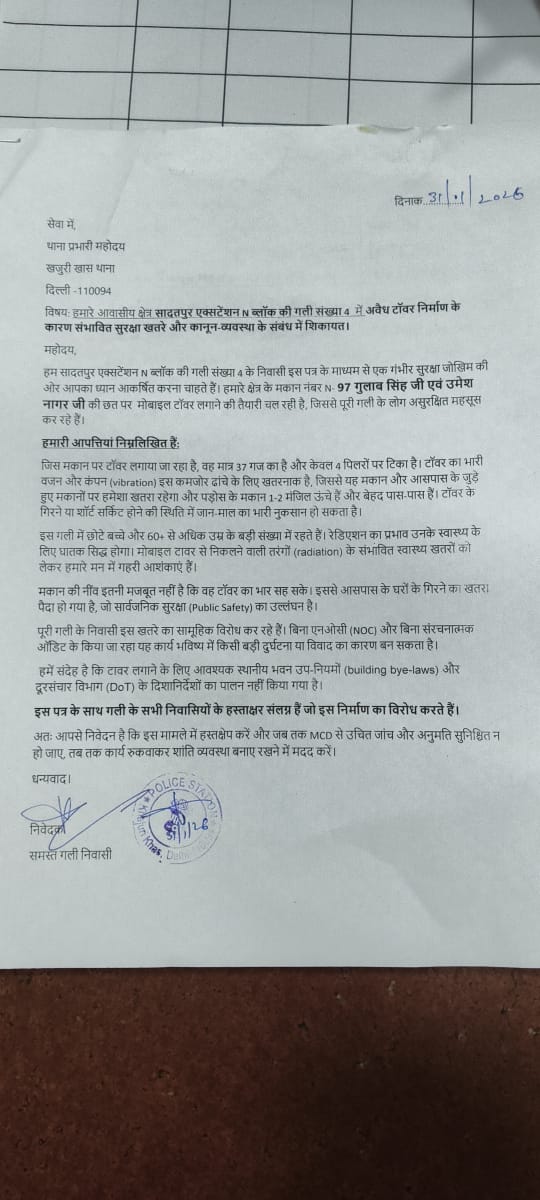 दिनाक 31/1/2026
सेवा में,
थाना प्रभारी महोदय
खजुरी खास थाना
दिल्ली -110094
विषय: हमारे आवासीय क्षेत्र सादतपुर एक्सटेंशन N ब्लॉक की गली संख्या 4 में अवैध टॉवर निर्माण के
कारण संभावित सुरक्षा खतरे और कानून-व्यवस्था के संबंध में शिकायत।
महोदय,
हम सादतपुर एक्सटेंशन N ब्लॉक की गली संख्या 4 के निवासी इस पत्र के माध्यम से एक गंभीर सुरक्षा जोखिम की
ओर आपका ध्यान आकर्षित करना चाहते हैं। हमारे क्षेत्र के मकान नंबर N- 97 गुलाब सिंह जी एवं उमेश
नागर जी की छत पर मोबाइल टॉवर लगाने की तैयारी चल रही है, जिससे पूरी गली के लोग असुरक्षित महसूस
कर रहे हैं।
हमारी आपत्तियां निम्नलिखित हैं:
जिस मकान पर टॉवर लगाया जा रहा है, वह मात्र 37 गज का है और केवल 4 पिलरों पर टिका है। टॉवर का भारी
वजन और कंपन (vibration) इस कमजोर ढांचे के लिए खतरनाक है, जिससे यह मकान और आसपास के जुड़े
हुए मकानों पर हमेशा खतरा रहेगा और पड़ोस के मकान 1-2 मंजिल ऊंचे हैं और बेहद पास-पास हैं। टॉवर के
गिरने या शॉर्ट सर्किट होने की स्थिति में जान-माल का भारी नुकसान हो सकता है।
इस गली में छोटे बच्चे और 60+ से अधिक उम्र के बड़ी संख्या में रहते हैं। रेडिएशन का प्रभाव उनके स्वास्थ्य के
लिए घातक सिद्ध होगा। मोबाइल टावर से निकलने वाली तरंगों (radiation) के संभावित स्वास्थ्य खतरों को
लेकर हमारे मन में गहरी आशंकाएं हैं।
मकान की नींव इतनी मजबूत नहीं है कि वह टॉवर का भार सह सके। इससे आसपास के घरों के गिरने का खतरा
पैदा हो गया है, जो सार्वजनिक सुरक्षा (Public Safety) का उल्लंघन है।
पूरी गली के निवासी इस खतरे का सामूहिक विरोध कर रहे हैं। बिना एनओसी (NOC) और बिना संरचनात्मक
ऑडिट के किया जा रहा यह कार्य भविष्य में किसी बड़ी दुर्घटना या विवाद का कारण बन सकता है।
हमें संदेह है कि टावर लगाने के लिए आवश्यक स्थानीय भवन उप-नियमों (building bye-laws) और
दूरसंचार विभाग (DoT) के दिशानिर्देशों का पालन नहीं किया गया है।
इस पत्र के साथ गली के सभी निवासियों के हस्ताक्षर संलग्न हैं जो इस निर्माण का विरोध करते हैं।
अतः आपसे निवेदन है कि इस मामले में हस्तक्षेप करें और जब तक MCD से उचित जांच और अनुमति सुनिश्चित न
हो जाए, तब तक कार्य रुकवाकर शांति व्यवस्था बनाए रखने में मदद करें।
धन्यवाद।
POLICE STATION
Khajuri Khas, Delhi
31/1/26
निवेदक
समस्त गली निवासी